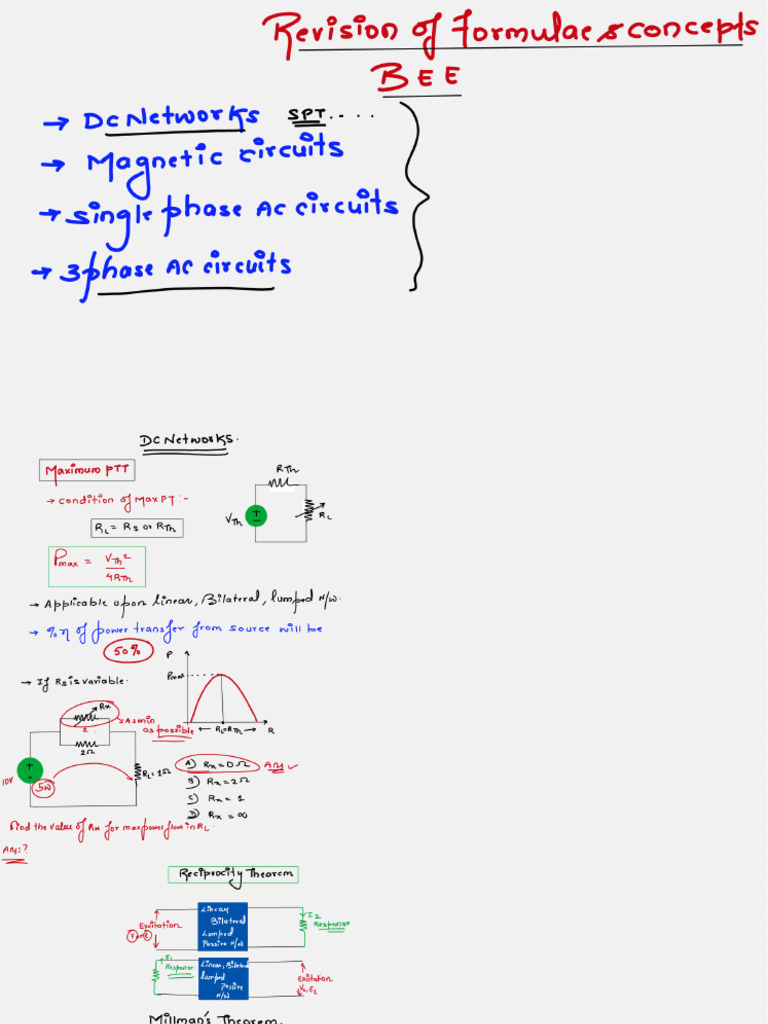 Revision of Formulae & concepts
BEE
→ DC Networks SPT....
→ Magnetic circuits
→ single phase AC circuits
→ 3 phase AC circuits
DC Networks.
Maximum PTT
→ condition of Max PT :-
RL = Rs or RTh
RTh
VTh
RL
Pmax = VTh² / 4RTh
→ Applicable upon Linear, Bilateral, lumped N/w.
→ %η of power transfer from source will be
50%
P
Pmax
← RL=RTh → R
→ If Rs is variable.
Rx
2
→ As min
as possible
2Ω
10V
RL=1Ω
A) Rx = 0Ω Ans ✓
B) Rx = 2Ω
C) Rx = 1
D) Rx = ∞
Find the value of Rx for max power flow in RL.
Ans:?
Reciprocity Theorem
Excitation
Linear
Bilateral
Lumped
Passive N/w
I2
Response
I1
Response
Linear, Bilateral
lumped
Passive
N/w
Excitation
Millman's Theorem.